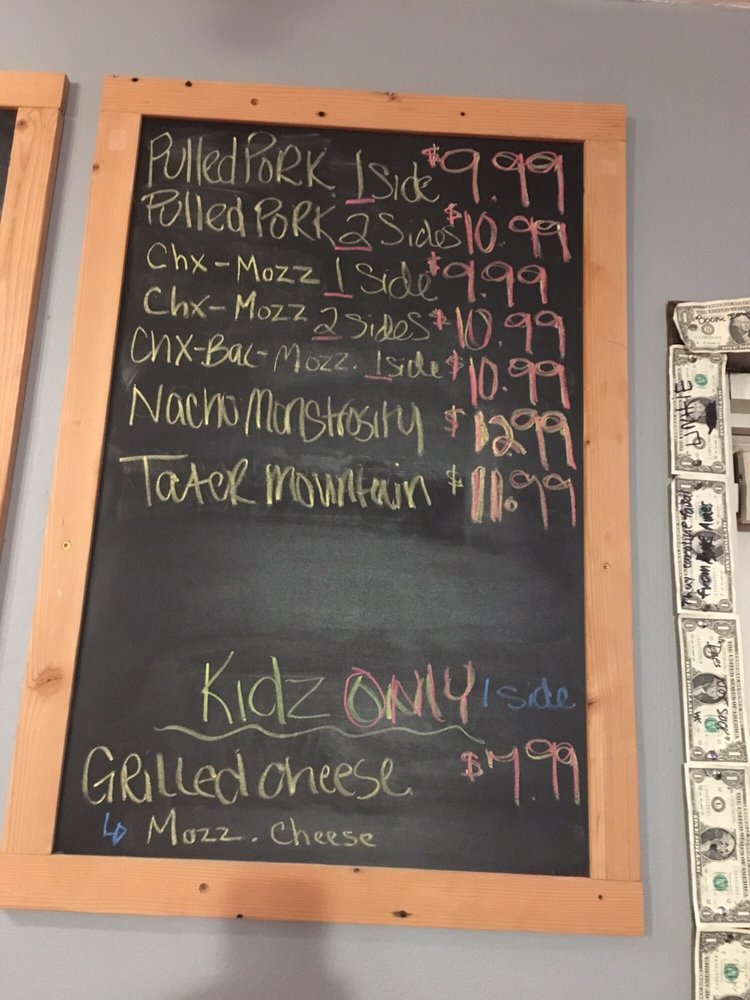 Pulled Pork 1 Side $9.99
Pulled Pork 2 Sides $10.99
Chx-Mozz 1 Side $9.99
Chx-Mozz 2 Sides $10.99
Chx-Bac-Mozz. 1 side $10.99
Nacho Monstrosity $12.99
Tater Mountain $11.99
Kidz ONLY 1 side
Grilled cheese $7.99
Mozz. Cheese